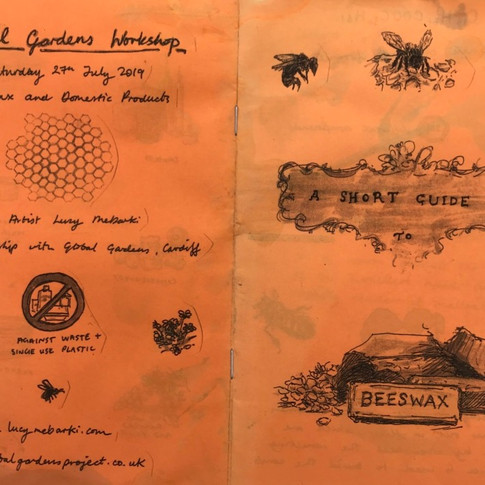 l Gardens Workshop
aturday 27th July 2019
ax and Domestic Products
Artist Lucy Mebarki
ship with Global Gardens, Cardiff
AGAINST WASTE +
SINGLE USE PLASTIC
lucymebarki.com
balgardensproject.co.uk
A SHORT GUIDE
TO
BEESWAX